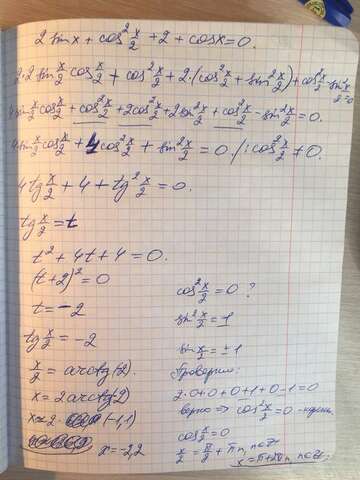 2 sinx + cos² x/2 + 2 + cosx = 0.
2·2 sin x/2 cos x/2 + cos² x/2 + 2·(cos² x/2 + sin² x/2) + cos² x/2 - sin² x/2 = 0
4 sin x/2 cos x/2 + cos² x/2 + 2cos² x/2 + 2sin² x/2 + cos² x/2 - sin² x/2 = 0.
4 sin x/2 cos x/2 + 4cos² x/2 + sin² x/2 = 0 /: cos² x/2 ≠ 0.
4 tg x/2 + 4 + tg² x/2 = 0.
tg x/2 = t
t² + 4t + 4 = 0.
(t+2)² = 0
t = -2
tg x/2 = -2
x/2 = arctg(-2).
x = 2arctg(-2)
x ≈ 2· (-1,1)
x = -2,2
cos² x/2 = 0 ?
sin² x/2 = 1
sin x/2 = ±1
Проверим:
2·0+0+0+1+0-1=0
верно => cos² x/2 = 0 -
cos x/2 = 0
x/2 = π/2 + πn, n∈Z
x = π+2πn, n∈Z